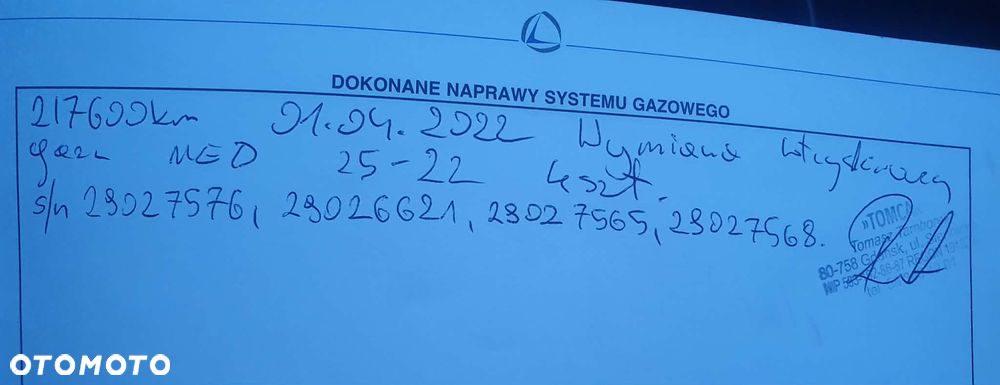 DOKONANE NAPRAWY SYSTEMU GAZOWEGO
217600km 01.04.2022 Wymiana wtryskiwaczy
gazu MED 25-22 4szt.
s/n 29027576, 29026621, 29027565, 29027568.
»TOMCA
Tomasz
80-758 Gdańsk, ul.
NIP
tel
OTOMOTO